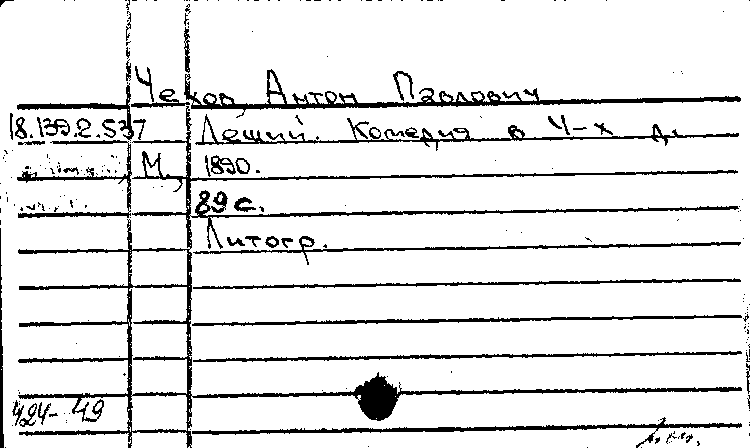 Чехов, Антон Павлович
18.139.2.537 Леший. Комедия в 4-х д.
М., 1890.
89 с.
Литогр.
424-49